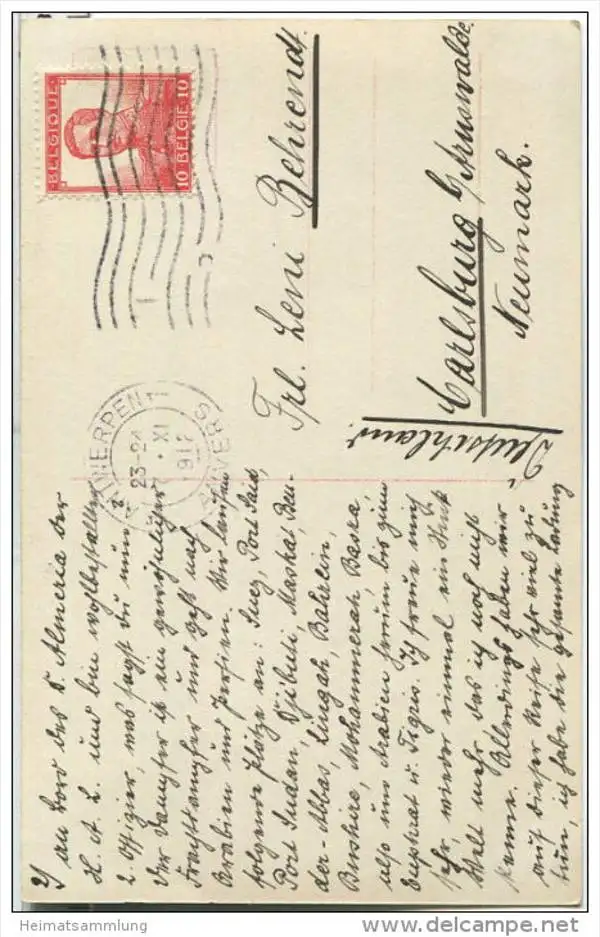 BELGIQUE
10 BELGIE 10
ANTWERPEN 1
23-24
XI
191
ANVERS
Frl. Leni Behrendt
Carlsburg b/Arnswalde
Neumark.
Deutschland.
2/ an Bord des D. Almeria der
H. A. L. und bin wohlbestallter
2. Offizier, was sagst du nun?
Der Dampfer ist ein gewöhnlicher
Frachtdampfer und geht nach
Arabien und Persien. Wir laufen
folgende Plätze an: Suez, Port Said,
Port Sudan, Djibuti, Maskat, Ben-
der-Abbas, Lingah, Bahrein,
Bushire, Mohammerah Basra,
also um Arabien herum bis zum
Euphrat u. Tigris. Ich freue mich
sehr, wieder einmal ein Stück
Welt mehr das ich noch nicht
kenne. Allerdings haben wir
auf dieser Reise sehr viel zu
tun, ich habe die gesamte Ladung
Heimatsammlung
www.delcampe.net